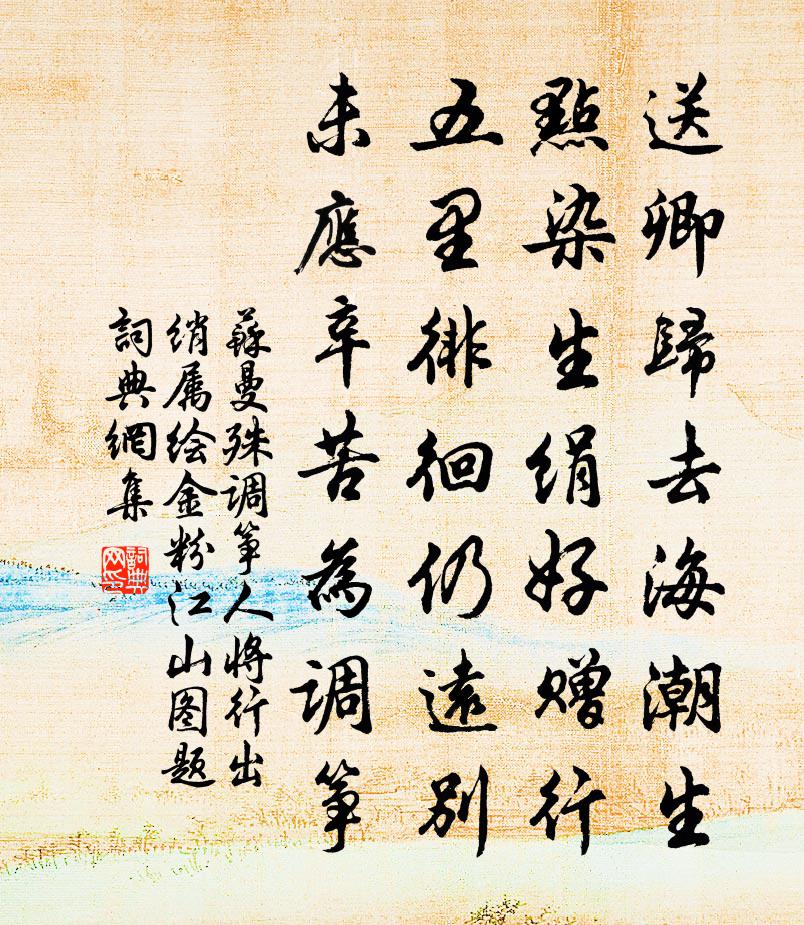 送卿歸去海潮生
點染生绢好赠行
五里徘徊仍遠別
未應辛苦為調筝
蘇曼殊调筝人将行出
绡属绘金粉江山图题
詞典網集
詞典网印